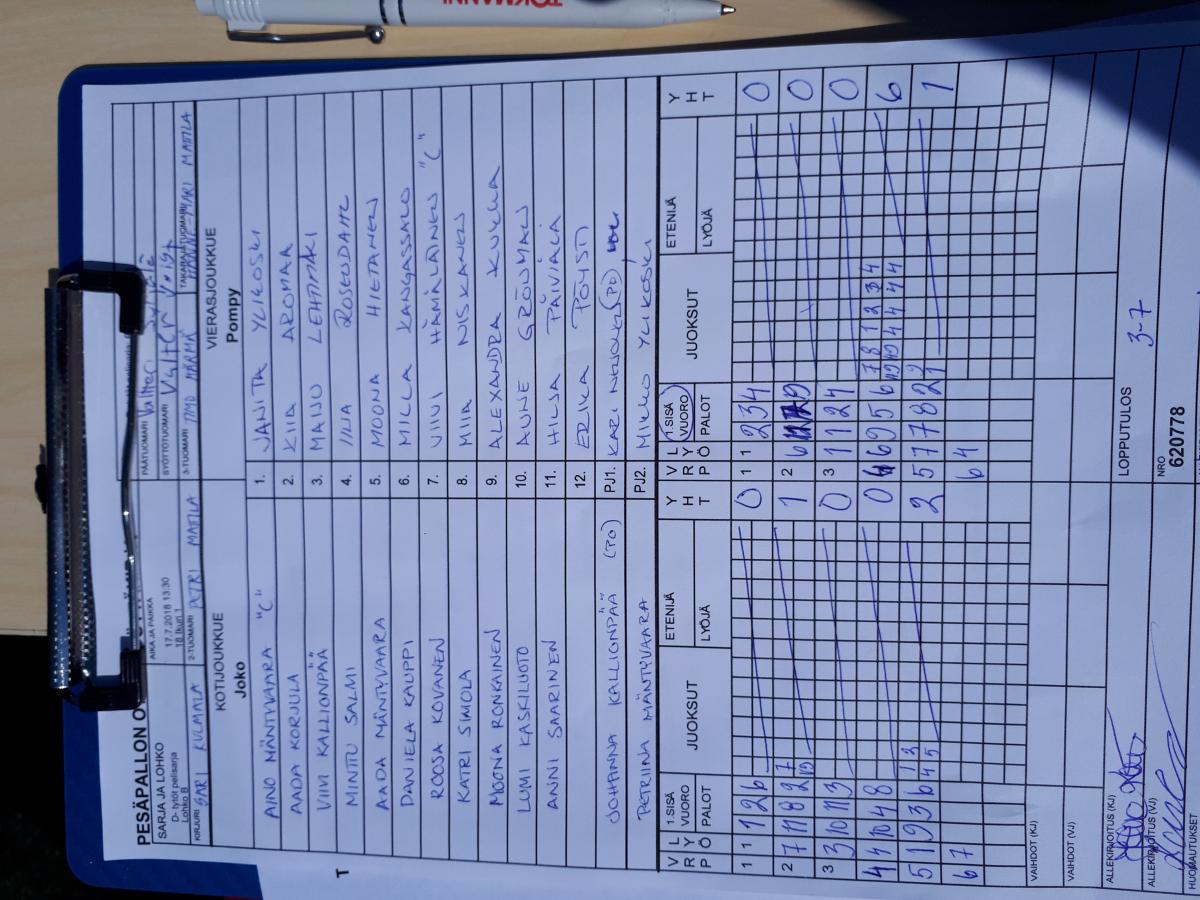 TOKMANNI
PESÄPALLON O
SARJA JA LOHKO
D- tytöt pelisarja
Lohko B
AIKA JA PAIKKA
17.7.2018 13:30
PÄÄTUOMARI Valtteri
SYÖTTÖTUOMARI Valter Voigt
KIRJURI SARI KULMALA
2-TUOMARI PETRI MATTILA
3-TUOMARI TIMO MÄRMÄ
TAKARAJATUOMARI HANNE-MARI MATTILA
KOTIJOUKKUE VIERASJOUKKUE
Joko Pompy
AINO MÄNTYVAARA "C" 1. JANITA YLIKOSKI
AADA KORJULA 2. KIIA AROMAA
VIIVI KALLIONPÄÄ 3. MANU LEHMÄKI
MINTTU SALMI 4. IIIA ROSENDAHL
AADA MÄNTYVAARA 5. MOONA HIETANEN
DANIELA KAUPPI 6. MILLA KANGASSALO
ROOSA KOVANEN 7. VIIVI HÄMÄLÄINEN "C"
KATRI SIMOLA 8. MIIA NISKANEN
MOONA RONKAINEN 9. ALEXANDRA KUKKA
LUMI KASKILUOTO 10. AUNE GRÖNMAN
ANNI SAARINEN 11. HILJA PÄIVIÄLÄ
12. ERIKA PÖYSTI
JOHANNA KALLIONPÄÄ (PO) PJ1. KARI (PJ)
PETRIINA MÄNTYVAARA PJ2. MIKKO YLIKOSKI
V R Ö L Y P 1.SISÄ VUORO PALOT JUOKSUT ETENIJÄ LYÖJÄ Y H T V R Ö L Y P 1.SISÄ VUORO PALOT JUOKSUT ETENIJÄ LYÖJÄ Y H T
1 1 1 2 6 0 1 1 2 3 4 0
2 7 11 8 2 7 1 2 6 9 0
3 3 10 11 3 0 3 1 1 2 4 0
4 4 10 4 8 0 6 9 5 6 7 8 1 2 3 4 6
5 1 9 3 6 1 3 2 5 7 7 8 2 1
4 5
6 7 6 4
VAIHDOT (KJ)
VAIHDOT (VJ)
ALLEKIRJOITUS (KJ) LOPPUTULOS
3-7
ALLEKIRJOITUS (VJ) NRO
620778
HUOMAUTUKSET